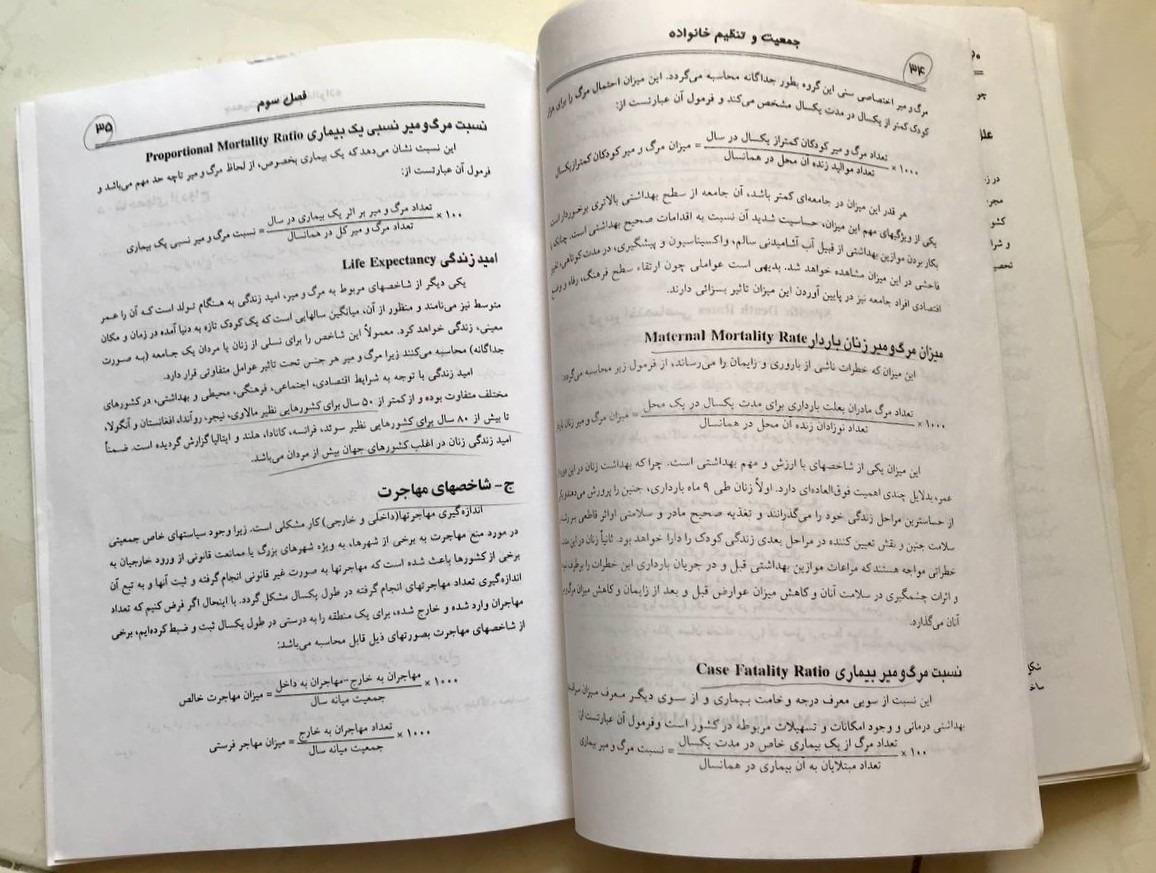 جمعیت و تنظیم خانواده
۳۴
مرگ و میر اختصاصی سنی این گروه بطور جداگانه محاسبه می‌گردد. این میزان احتمال مرگ را برای هزار
کودک کمتر از یکسال در مدت یکسال مشخص می‌کند و فرمول آن عبارتست از:
میزان مرگ و میر کودکان کمتر از یکسال = تعداد مرگ و میر کودکان کمتر از یکسال در سال / تعداد موالید زنده آن محل در همانسال × ۱۰۰۰
هر قدر این میزان در جامعه‌ای کمتر باشد، آن جامعه از سطح بهداشتی بالاتری برخوردار است
یکی از ویژگیهای مهم این میزان، حساسیت شدید آن نسبت به اقدامات صحیح بهداشتی است. چنانکه با
بکار بردن موازین بهداشتی از قبیل آب آشامیدنی سالم، واکسیناسیون و پیشگیری، در مدت کوتاهی، تغییر
فاحشی در این میزان مشاهده خواهد شد. بدیهی است عواملی چون ارتقاء سطح فرهنگ، رفاه و وضع
اقتصادی افراد جامعه نیز در پایین آوردن این میزان تاثیر بسزائی دارند.
میزان مرگ‌ومیر زنان باردار Maternal Mortality Rate
این میزان که خطرات ناشی از باروری و زایمان را می‌رساند، از فرمول زیر محاسبه می‌گردد:
میزان مرگ و میر زنان باردار = تعداد مرگ مادران بعلت بارداری برای مدت یکسال در یک محل / تعداد نوزادان زنده آن محل در همانسال × ۱۰۰۰
این میزان یکی از شاخصهای با ارزش و مهم بهداشتی است. چرا که بهداشت زنان در این دوره
عمر، بدلایل چندی اهمیت فوق‌العاده‌ای دارد. اولاً زنان طی ۹ ماه بارداری، جنین را پرورش می‌دهند و یکی
از حساسترین مراحل زندگی خود را می‌گذرانند و تغذیه صحیح مادر و سلامتی او اثر قاطعی بر رشد
سلامت جنین و نقش تعیین کننده در مراحل بعدی زندگی کودک را دارا خواهد بود. ثانیاً زنان در این مدت
خطراتی مواجه هستند که مراعات موازین بهداشتی قبل و در جریان بارداری این خطرات را برطرف
و اثرات چشمگیری در سلامت آنان و کاهش میزان عوارض قبل و بعد از زایمان و کاهش میزان مرگ‌ومیر
آنان می‌گذارد.
نسبت مرگ‌ومیر بیماری Case Fatality Ratio
این نسبت از سویی معرف درجه وخامت بیماری و از سوی دیگر معرف میزان
بهداشتی درمانی و وجود امکانات و تسهیلات مربوطه در کشور است و فرمول آن عبارتست از:
نسبت مرگ و میر بیماری = تعداد مرگ از یک بیماری خاص در مدت یکسال / تعداد مبتلایان به آن بیماری در همانسال × ۱۰۰
فصل سوم
۳۵
نسبت مرگ‌ومیر نسبی یک بیماری Proportional Mortality Ratio
این نسبت نشان می‌دهد که یک بیماری بخصوص، از لحاظ مرگ و میر تا چه حد مهم می‌باشد و
فرمول آن عبارتست از:
نسبت مرگ و میر نسبی یک بیماری = تعداد مرگ و میر بر اثر یک بیماری در سال / تعداد مرگ و میر کل در همانسال × ۱۰۰
امید زندگی Life Expectancy
یکی دیگر از شاخصهای مربوط به مرگ و میر، امید زندگی به هنگام تولد است که آن را عمر
متوسط نیز می‌نامند و منظور از آن، میانگین سالهایی است که یک کودک تازه به دنیا آمده در زمان و مکان
معینی، زندگی خواهد کرد. معمولاً این شاخص را برای نسلی از زنان یا مردان یک جامعه (به صورت
جداگانه) محاسبه می‌کنند زیرا مرگ و میر هر جنس تحت تاثیر عوامل متفاوتی قرار دارد.
امید زندگی با توجه به شرایط اقتصادی، اجتماعی، فرهنگی، محیطی و بهداشتی، در کشورهای
مختلف متفاوت بوده و از کمتر از ۵۰ سال برای کشورهایی نظیر مالاوی، نیجر، رواندا، افغانستان و آنگولا،
تا بیش از ۸۰ سال برای کشورهایی نظیر سوئد، فرانسه، کانادا، هلند و ایتالیا گزارش گردیده است. ضمناً
امید زندگی زنان در اغلب کشورهای جهان بیش از مردان می‌باشد.
ج- شاخصهای مهاجرت
اندازه‌گیری مهاجرتها(داخلی و خارجی) کار مشکلی است. زیرا وجود سیاستهای خاص جمعیتی
در مورد منع مهاجرت به برخی از شهرها، به ویژه شهرهای بزرگ یا ممانعت قانونی از ورود خارجیان به
برخی از کشورها باعث شده است که مهاجرتها به صورت غیر قانونی انجام گرفته و ثبت آنها و به تبع آن
اندازه‌گیری تعداد مهاجرتهای انجام گرفته در طول یکسال مشکل گردد. با اینحال اگر فرض کنیم که تعداد
مهاجران وارد شده و خارج شده، برای یک منطقه را به درستی در طول یکسال ثبت و ضبط کرده‌ایم، برخی
از شاخصهای مهاجرت بصورتهای ذیل قابل محاسبه می‌باشد:
میزان مهاجرت خالص = مهاجران به خارج-مهاجران به داخل / جمعیت میانه سال × ۱۰۰۰
میزان مهاجر فرستی = تعداد مهاجران به خارج / جمعیت میانه سال × ۱۰۰۰